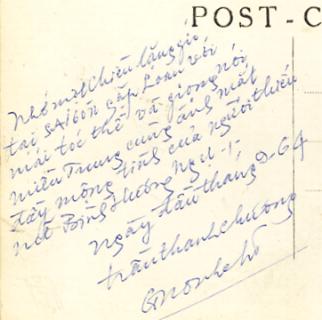 POST-C
Nhớ một chiều lang
tại SAIGON gặp Loan với
mái tóc thề và giọng nói
miền Trung cùng ánh mắt
đầy mộng tình của người thiếu
nữ Bình Dương
Ngày đầu tháng 9-64
trần thanh chương